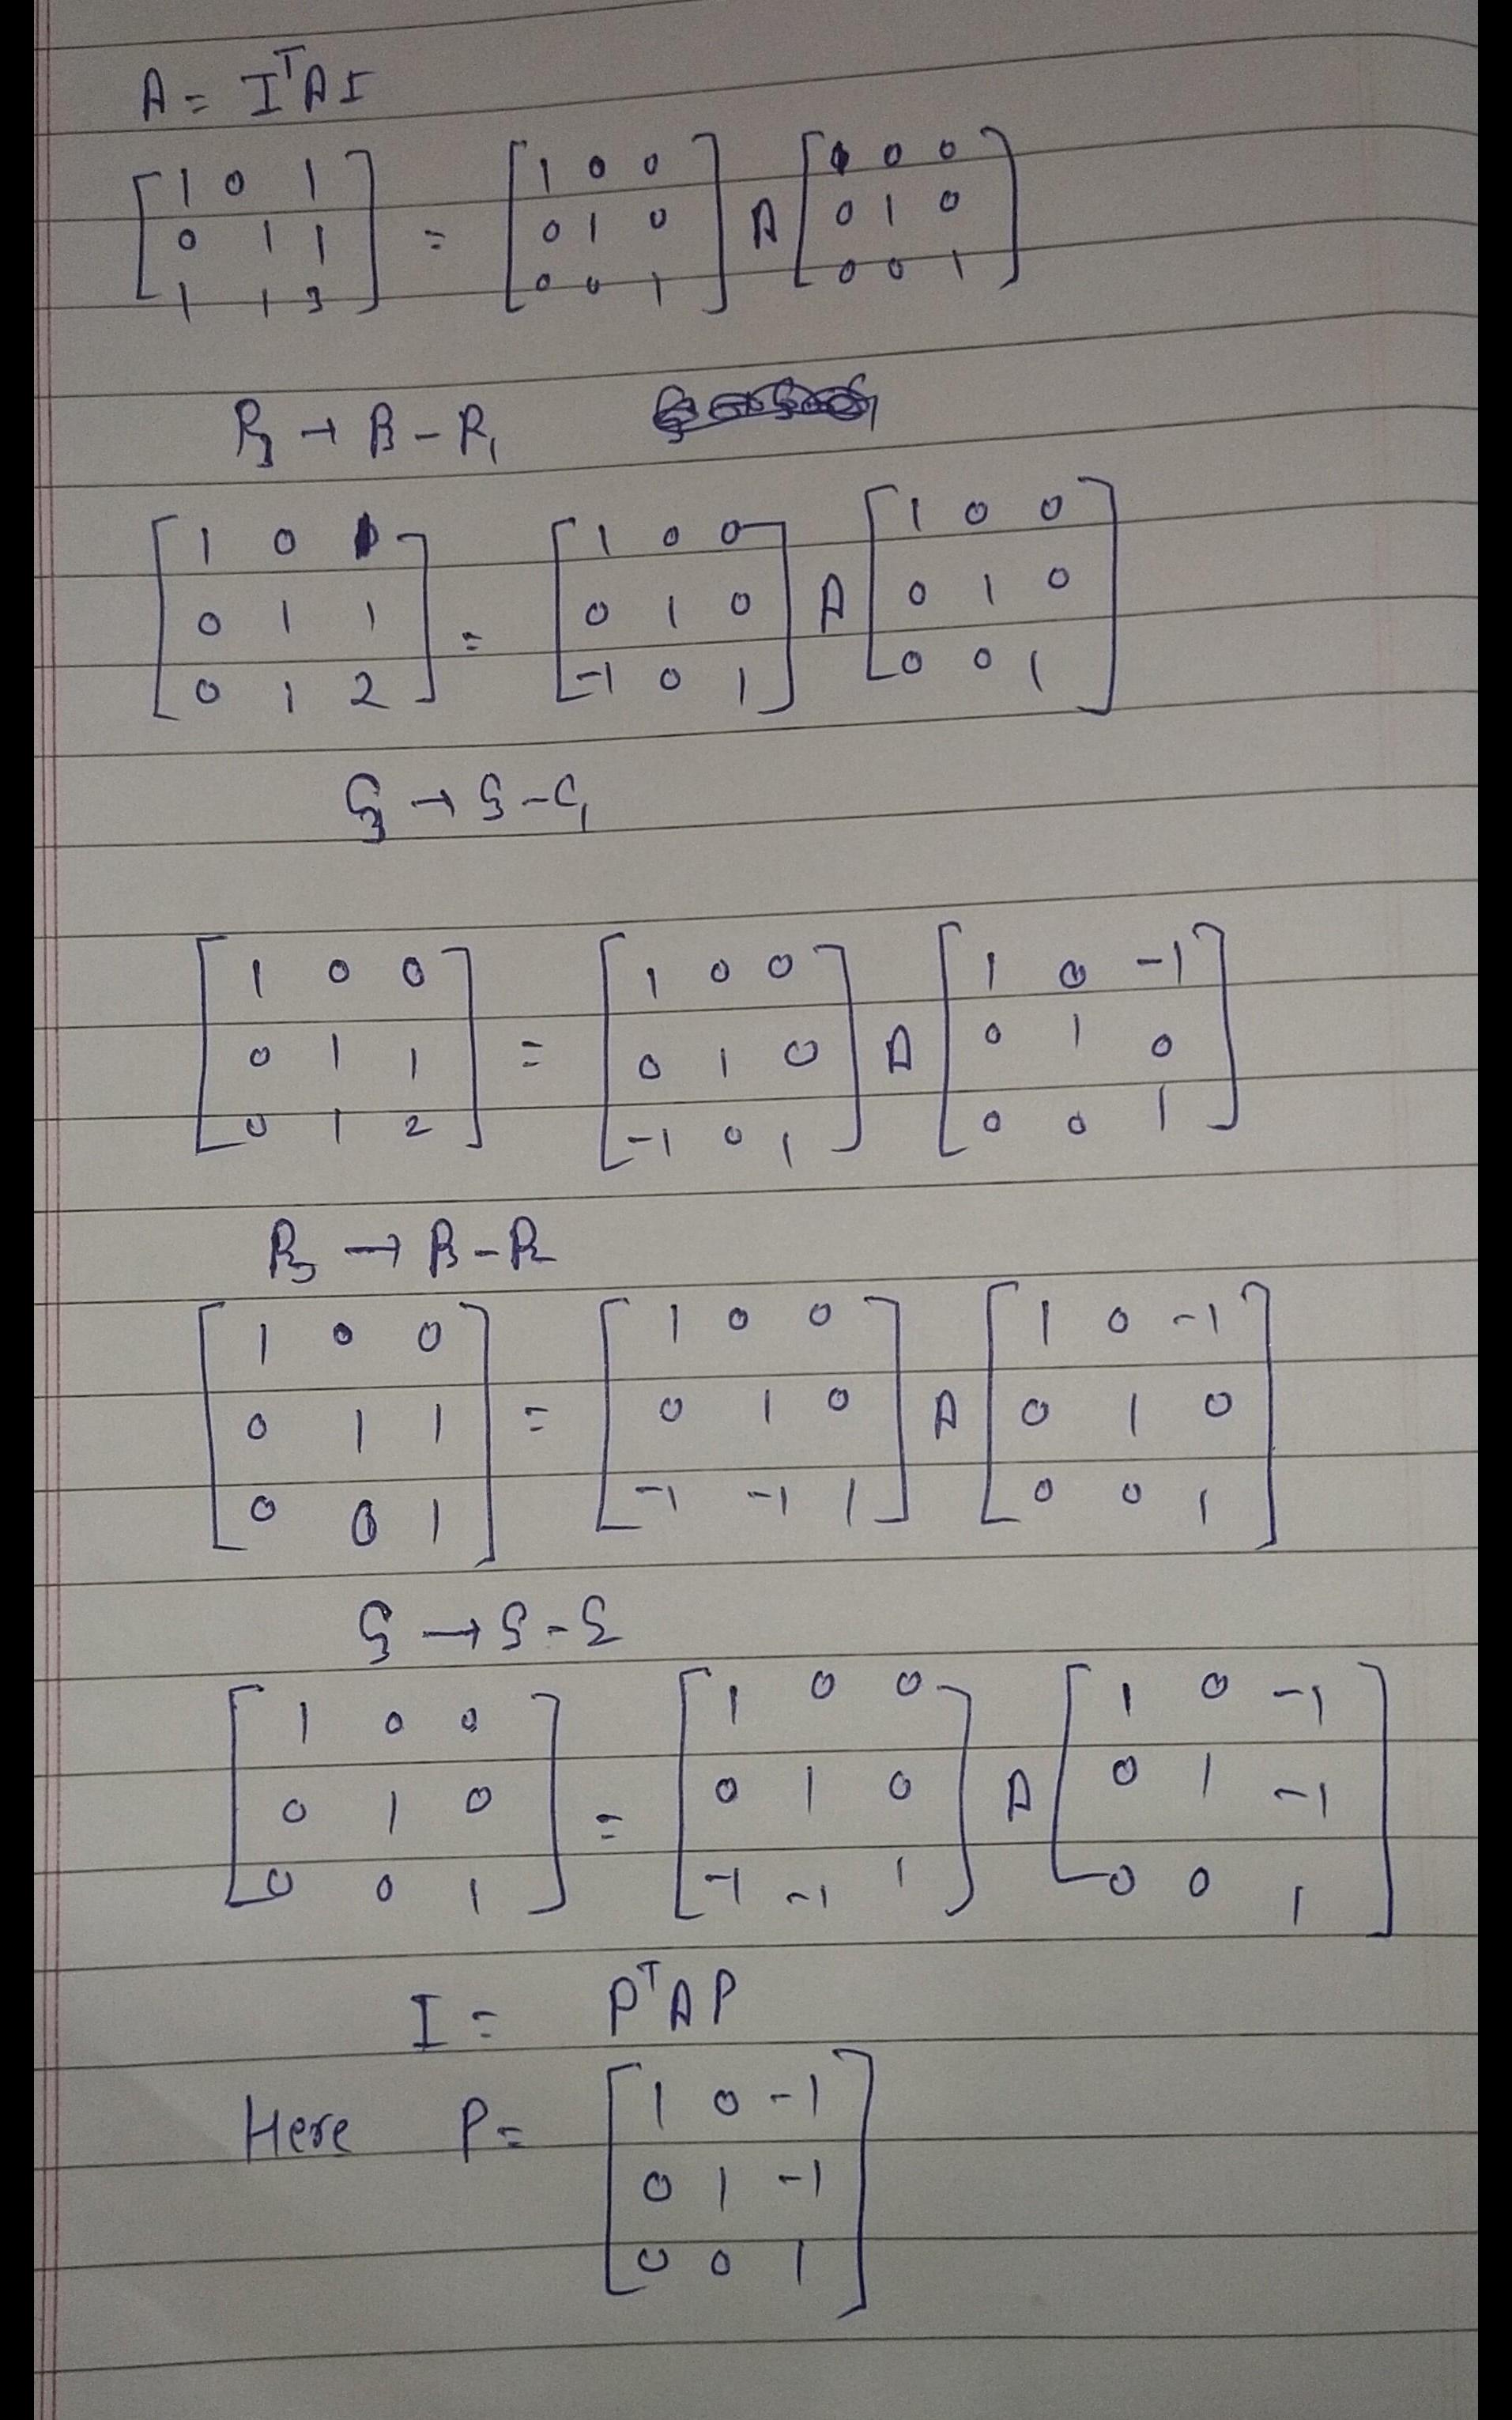 A = IᵀAI
[1 0 1; 0 1 1; 1 1 3] = [1 0 0; 0 1 0; 0 0 1] A [1 0 0; 0 1 0; 0 0 1]
R₃ → R₃ - R₁
[1 0 1; 0 1 1; 0 1 2] = [1 0 0; 0 1 0; -1 0 1] A [1 0 0; 0 1 0; 0 0 1]
C₃ → C₃ - C₁
[1 0 0; 0 1 1; 0 1 2] = [1 0 0; 0 1 0; -1 0 1] A [1 0 -1; 0 1 0; 0 0 1]
R₃ → R₃ - R₂
[1 0 0; 0 1 1; 0 0 1] = [1 0 0; 0 1 0; -1 -1 1] A [1 0 -1; 0 1 0; 0 0 1]
C₃ → C₃ - C₂
[1 0 0; 0 1 0; 0 0 1] = [1 0 0; 0 1 0; -1 -1 1] A [1 0 -1; 0 1 -1; 0 0 1]
I = PᵀAP
Here P = [1 0 -1; 0 1 -1; 0 0 1]